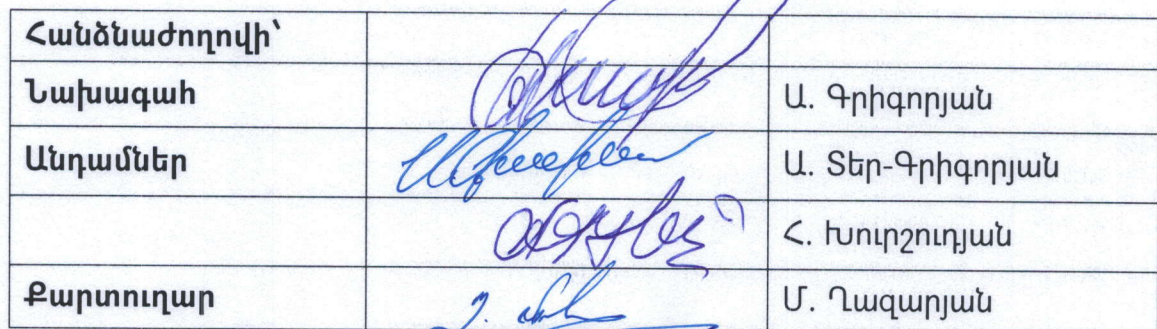 Հանձնաժողովի՝
Նախագահ Ա. Գրիգորյան
Անդամներ Ա. Տեր-Գրիգորյան
Հ. Խուրշուդյան
Քարտուղար Մ. Ղազարյան